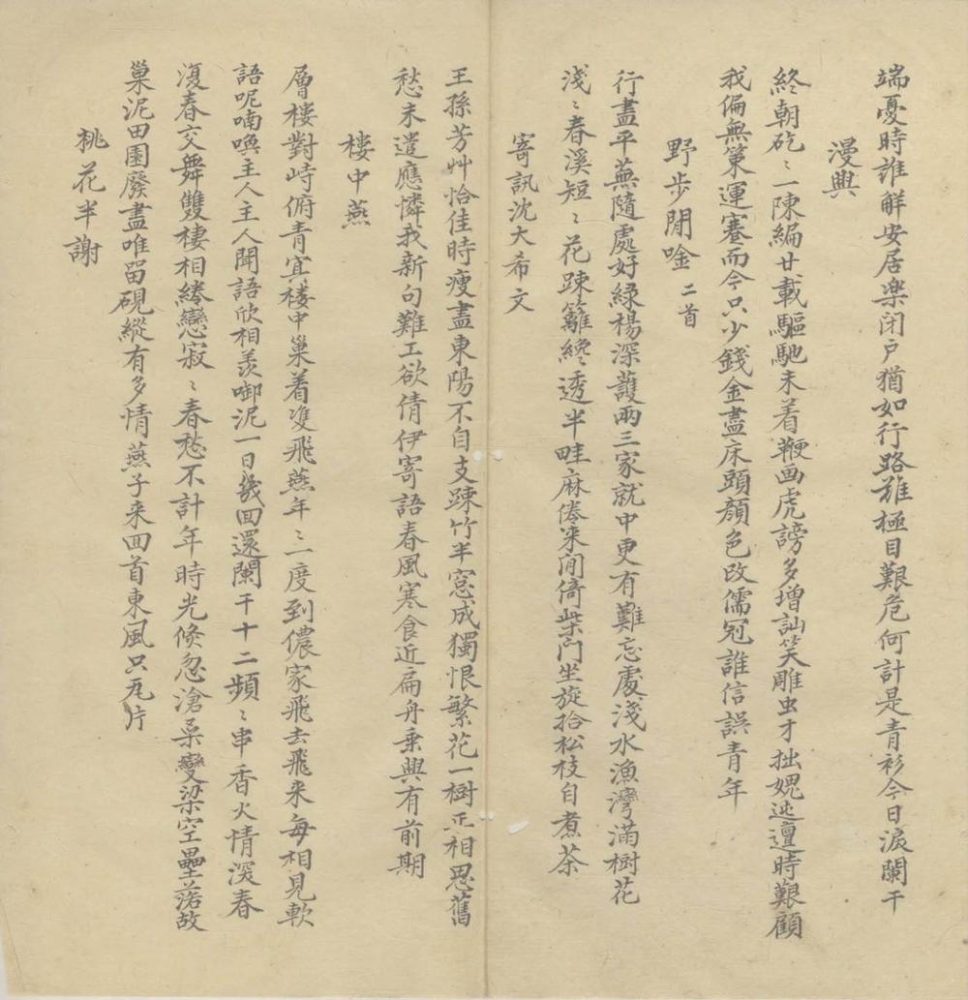 端憂時誰解安居楽闭户猶如行路难極目艱危何計是青衫今日淚闌干
漫興
終朝矻〻一陳編廿載驅馳未着鞭画虎謗多增訕笑雕虫才拙媿迍邅時艱顧
我偏無策運蹇而今只少錢金盡床頭顔色改儒冠誰信誤青年
野步閒唫 二首
行盡平蕪隨處好綠楊深護兩三家就中更有難忘處淺水漁灣滿樹花
淺〻春溪短〻花踈籬纔透半畦麻倦来閒倚柴门坐旋拾松枝自煮茶
寄訊沈大希文
王孫芳艸恰佳時瘦盡東陽不自支踈竹半窓成獨恨繁花一樹正相思舊
愁未遣應憐我新句難工欲倩伊寄語春風寒食近扁舟乗興有前期
楼中燕
層樓對峙俯青冥楼中巢着双飛燕年〻一度到儂家飛去飛来每相見軟
語呢喃喚主人主人聞語欣相羨啣泥一日幾回還闌干十二頻〻串香火情深春
復春交舞雙棲相綣戀寂〻春愁不計年時光倏忽滄桑變梁空壘落故
巢泥田園廢盡唯留硯縱有多情燕子来回首東風只九片
桃花半謝